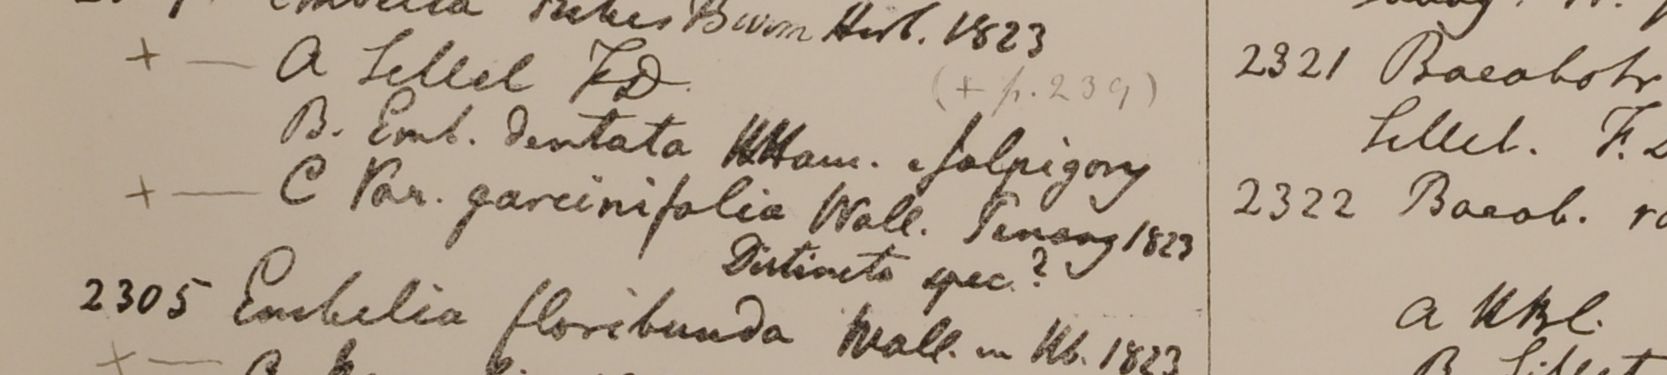 Embelia Ribes Burm Herb. 1823
+ — A Sillet F.D.
(+ p. 239)
B. Emb. dentata HHam. e Jalpigory
+ — C Var. garcinifolia Wall. Penang 1823
Distincta spec.?
2305 Embelia floribunda Wall. in Hb. 1823
+ —
2321 Baeobotr
Sillet. F. D
2322 Baeob. ra
a HBC.
B Sillet